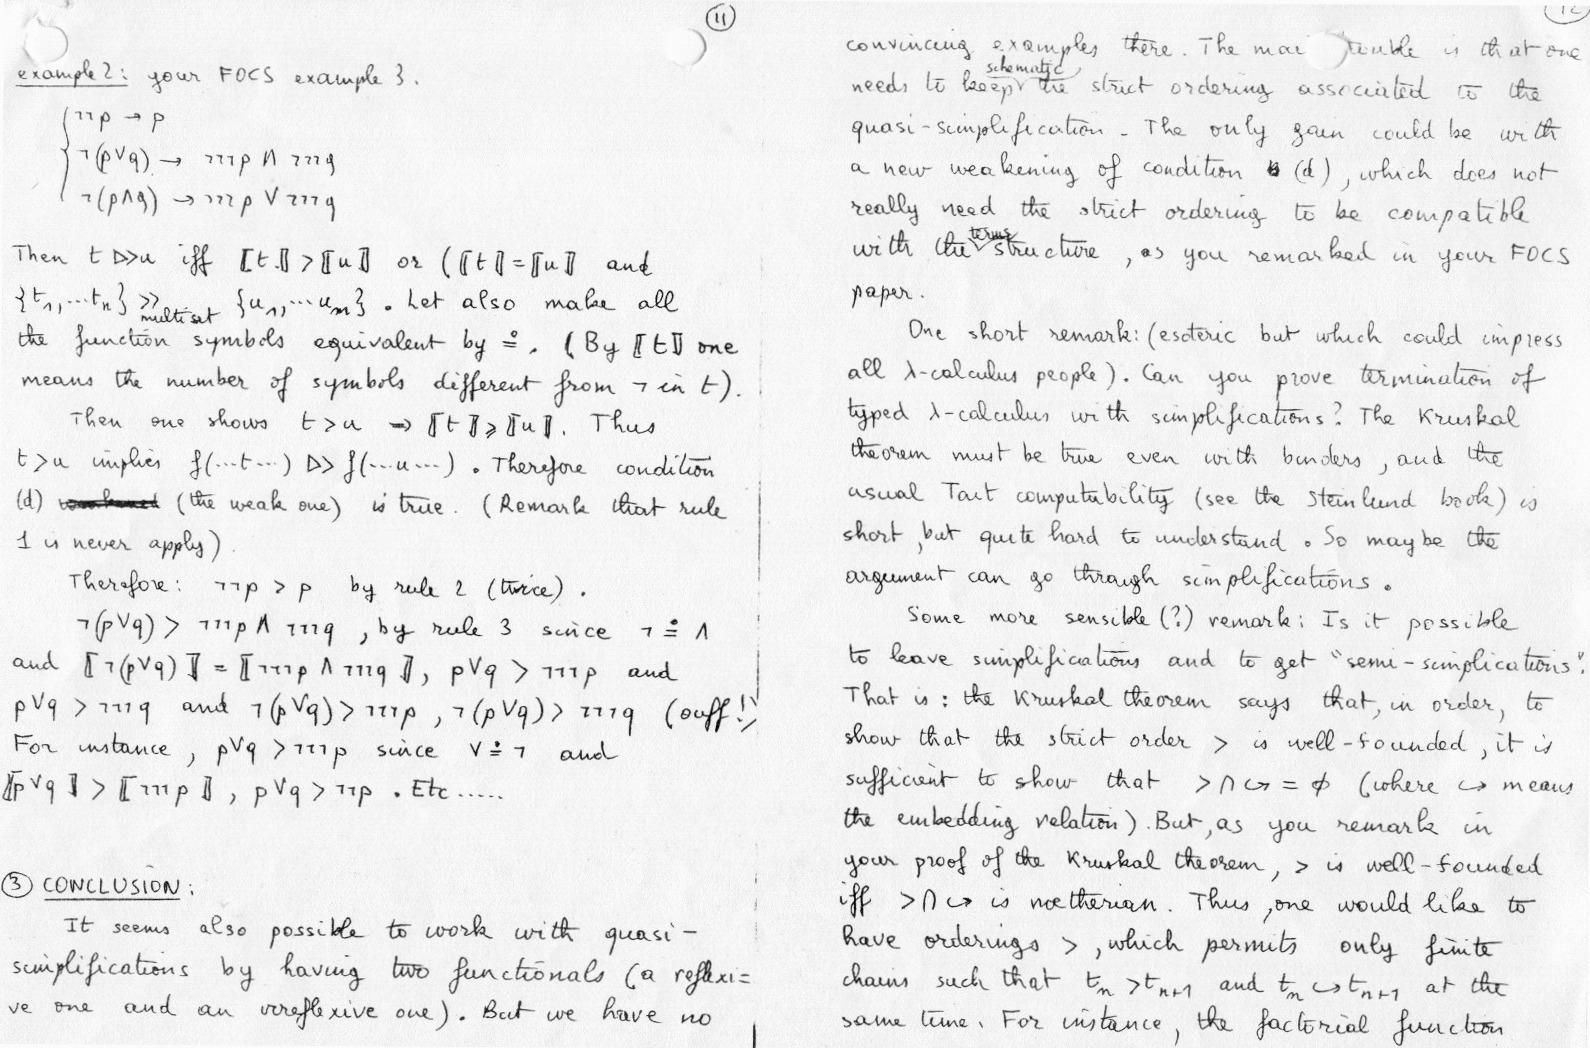 11
example 2: your FOCS example 3.
¬¬p → p
¬(p∨q) → ¬¬¬p ∧ ¬¬¬q
¬(p∧q) → ¬¬¬p ∨ ¬¬¬q
Then t ▷>u iff ⟦t⟧ > ⟦u⟧ or (⟦t⟧ = ⟦u⟧ and
{t₁,...tₙ} ≫multiset {u₁,...uₘ}. Let also make all
the function symbols equivalent by ≐. (By ⟦t⟧ one
means the number of symbols different from ¬ in t).
Then one shows t > u ⇒ ⟦t⟧ ⩾ ⟦u⟧. Thus
t > u implies f(...t...) ▷> f(...u...). Therefore condition
(d) (the weak one) is true. (Remark that rule
1 is never apply)
Therefore: ¬¬p > p by rule 2 (twice).
¬(p∨q) > ¬¬¬p ∧ ¬¬¬q, by rule 3 since ¬ ≐ ∧
and ⟦¬(p∨q)⟧ = ⟦¬¬¬p ∧ ¬¬¬q⟧, p∨q > ¬¬¬p and
p∨q > ¬¬¬q and ¬(p∨q) > ¬¬¬p, ¬(p∨q) > ¬¬¬q (ouff!)
For instance, p∨q > ¬¬¬p since ∨ ≐ ¬ and
⟦p∨q⟧ > ⟦¬¬¬p⟧, p∨q > ¬¬p. Etc.....
③ CONCLUSION:
It seems also possible to work with quasi-
simplifications by having two functionals (a reflexi=
ve one and an irreflexive one). But we have no
12
convincing examples there. The is that one
needs to keep schematic the strict ordering associated to the
quasi-simplification. The only gain could be with
a new weakening of condition (d), which does not
really need the strict ordering to be compatible
with the terms structure, as you remarked in your FOCS
paper.
One short remark: (esoteric but which could impress
all λ-calculus people). Can you prove termination of
typed λ-calculus with simplifications? The Kruskal
theorem must be true even with binders, and the
usual Tait computability (see the Stenlund book) is
short, but quite hard to understand. So maybe the
argument can go through simplifications.
Some more sensible (?) remark: Is it possible
to leave simplifications and to get "semi-simplications".
That is: the Kruskal theorem says that, in order, to
show that the strict order > is well-founded, it is
sufficient to show that > ∩ ↪ = ϕ (where ↪ means
the embedding relation). But, as you remark in
your proof of the Kruskal theorem, > is well-founded
iff > ∩ ↪ is nœtherian. Thus, one would like to
have orderings >, which permits only finite
chains such that tₙ > tₙ₊₁ and tₙ ↪ tₙ₊₁ at the
same time. For instance, the factorial function